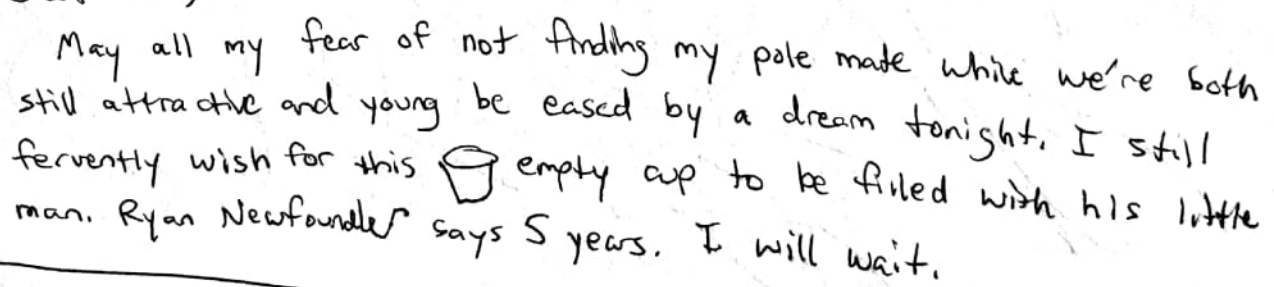 May all my fear of not finding my pole mate while we're both
still attractive and young be eased by a dream tonight. I still
fervently wish for this empty cup to be filled with his little
man. Ryan Newfoundler says 5 years. I will wait.